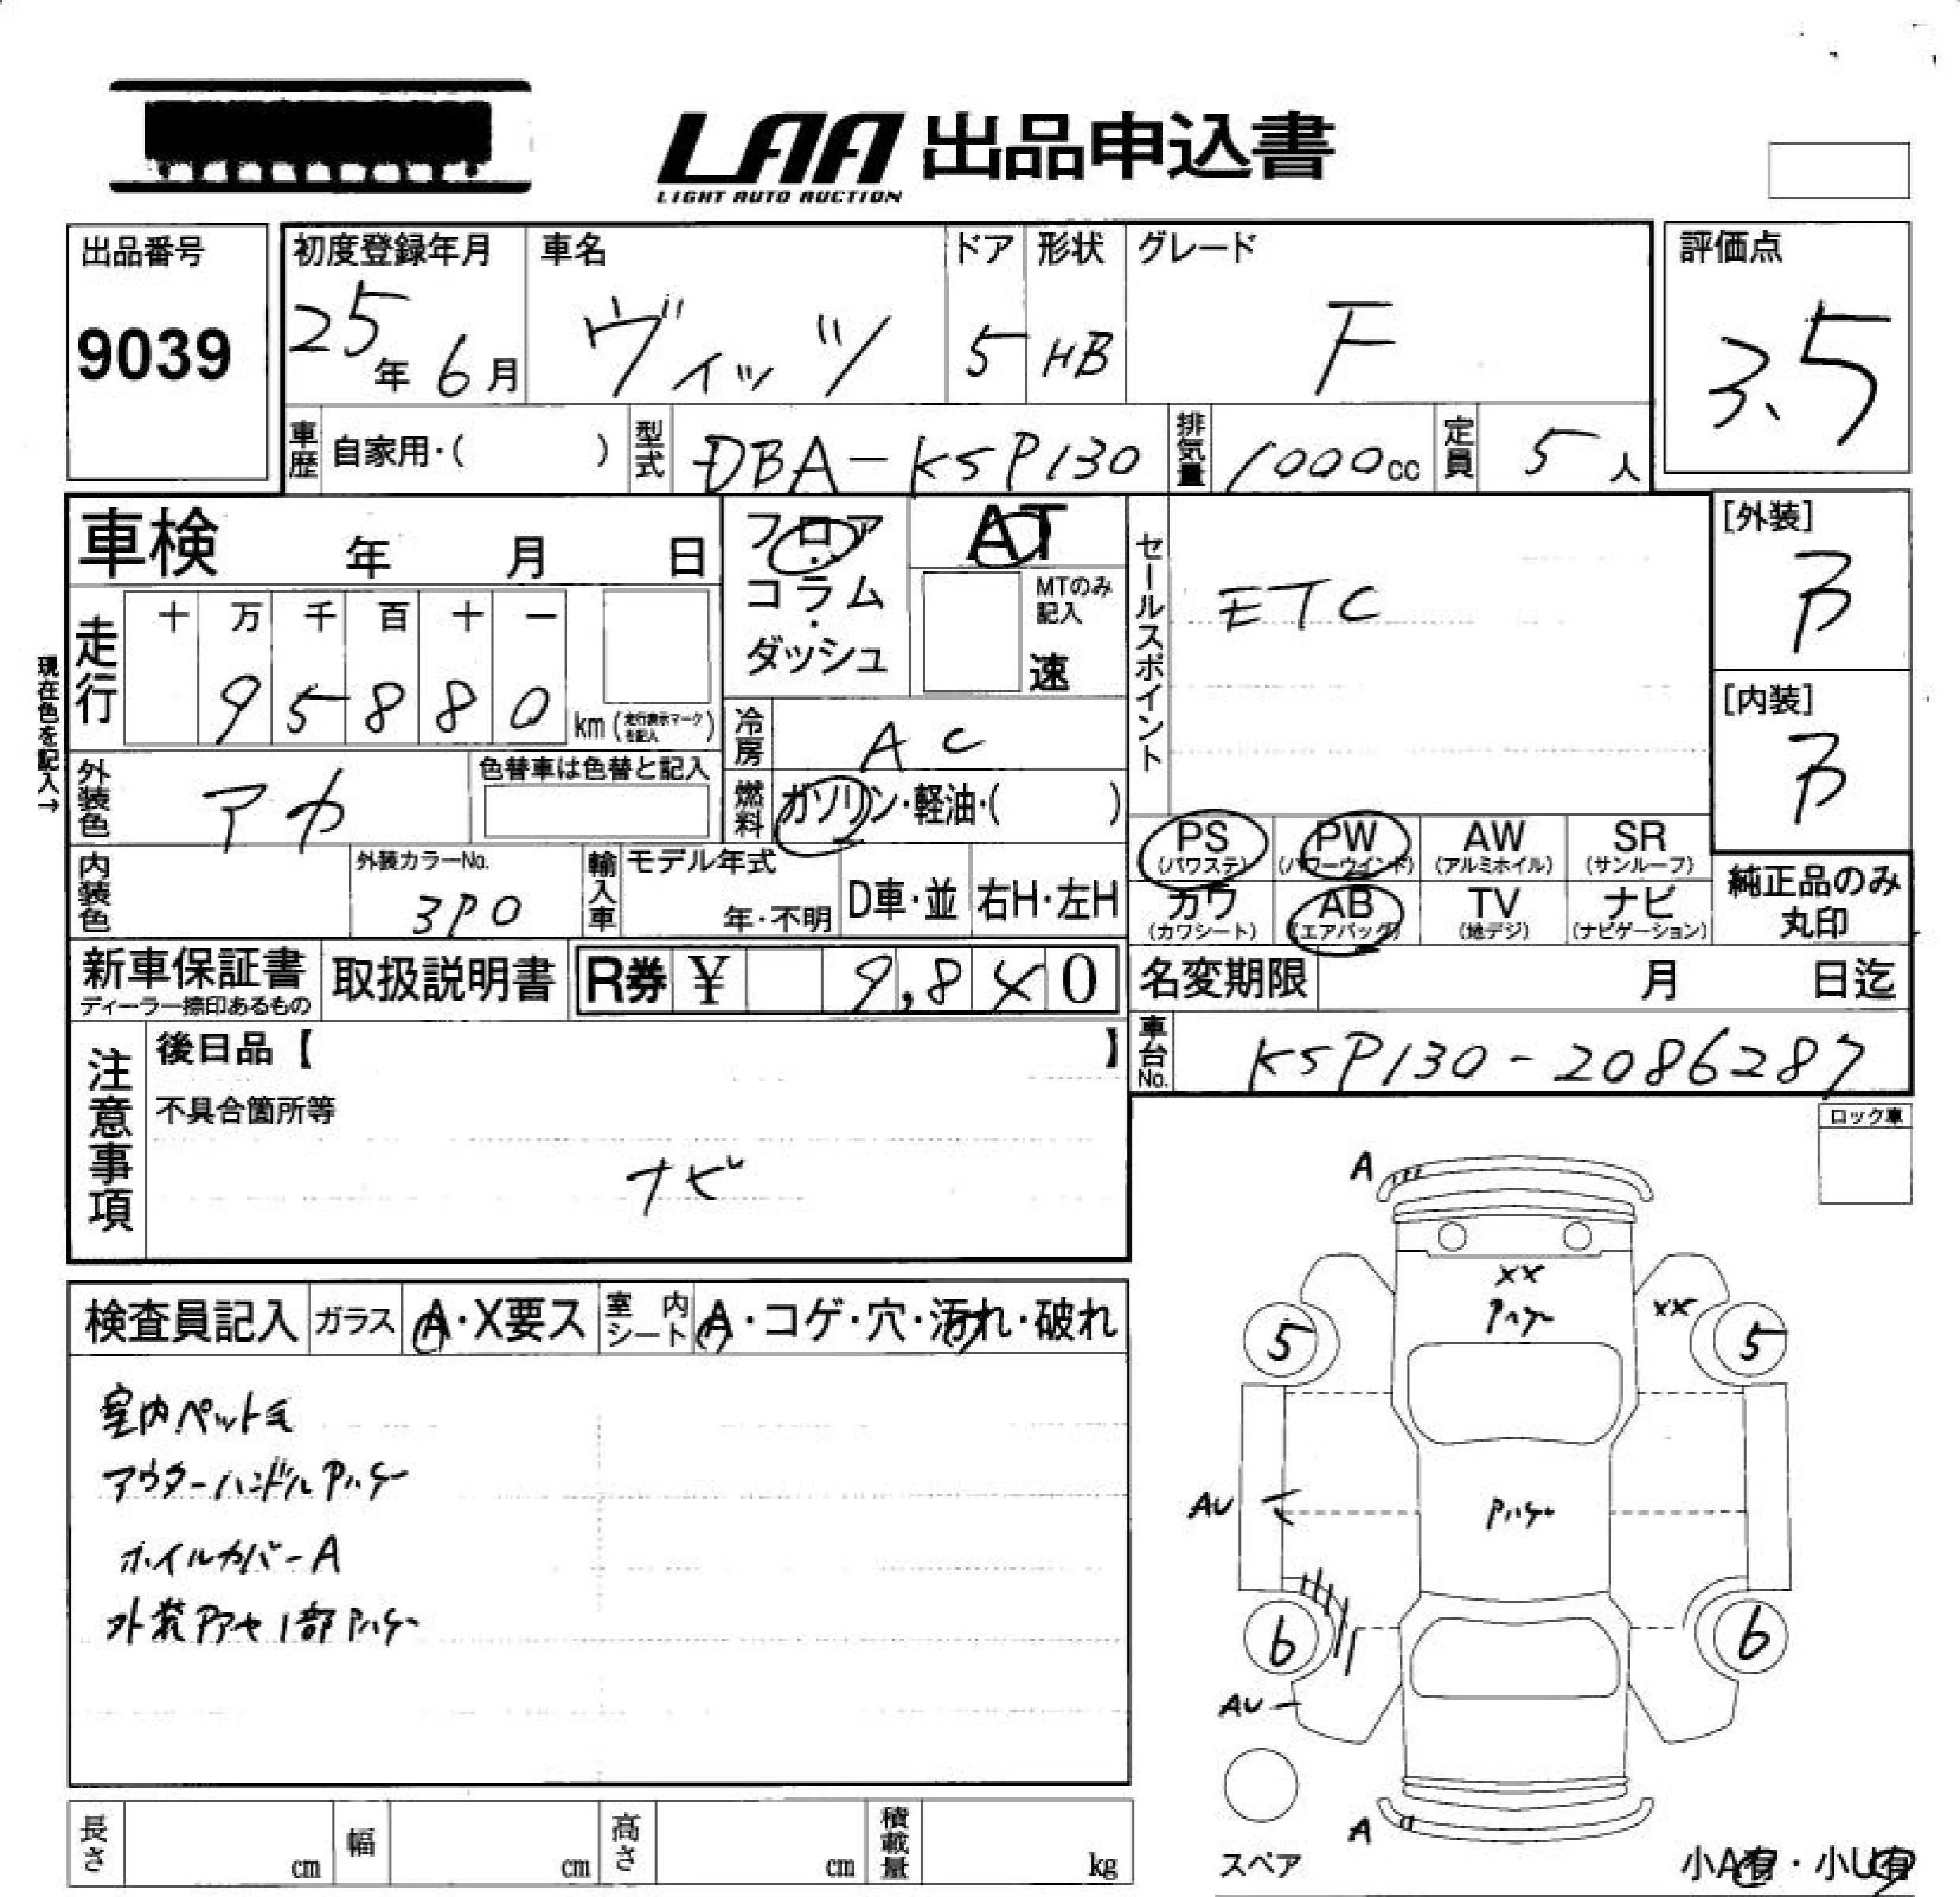 LAA 出品申込書
LIGHT AUTO AUCTION
出品番号
9039
初度登録年月
25年6月
車名
ヴィッツ
ドア
5
形状
HB
グレード
F
評価点
3.5
車歴 自家用・( )
型式 DBA-KSP130
排気量 1000cc
定員 5人
車検 年 月 日
走行
十 万 千 百 十 一
9 5 8 8 0 km (走行表示マークを記入)
現在色を記入→
外装色 アカ
色替車は色替と記入
内装色
外装カラーNo.
3P0
輸入車
モデル年式
年・不明
D車・並
右H・左H
フロア
・
コラム
・
ダッシュ
AT
MTのみ記入
速
冷房 AC
燃料 ガソリン・軽油・( )
セールスポイント
ETC
[外装]
B
[内装]
B
PS (パワステ)
PW (パワーウインド)
AW (アルミホイル)
SR (サンルーフ)
カワ (カワシート)
AB (エアバッグ)
TV (地デジ)
ナビ (ナビゲーション)
純正品のみ丸印
新車保証書
ディーラー捺印あるもの
取扱説明書
R券 ¥ 9,840
名変期限 月 日迄
車台No. KSP130-2086287
注意事項
後日品【 】
不具合箇所等
ナビ
ロック車
検査員記入
ガラス A・X要ス
室内シート A・コゲ・穴・汚れ・破れ
室内ペット毛
アウターハンドルPハゲ
ホイルカバーA
外装PPセ1部Pハゲ
A
XX
Pハゲ
XX
5
5
AU
Pハゲ
6
6
AU
A
スペア
小A有・小U有
長さ cm
幅 cm
高さ cm
積載量 kg